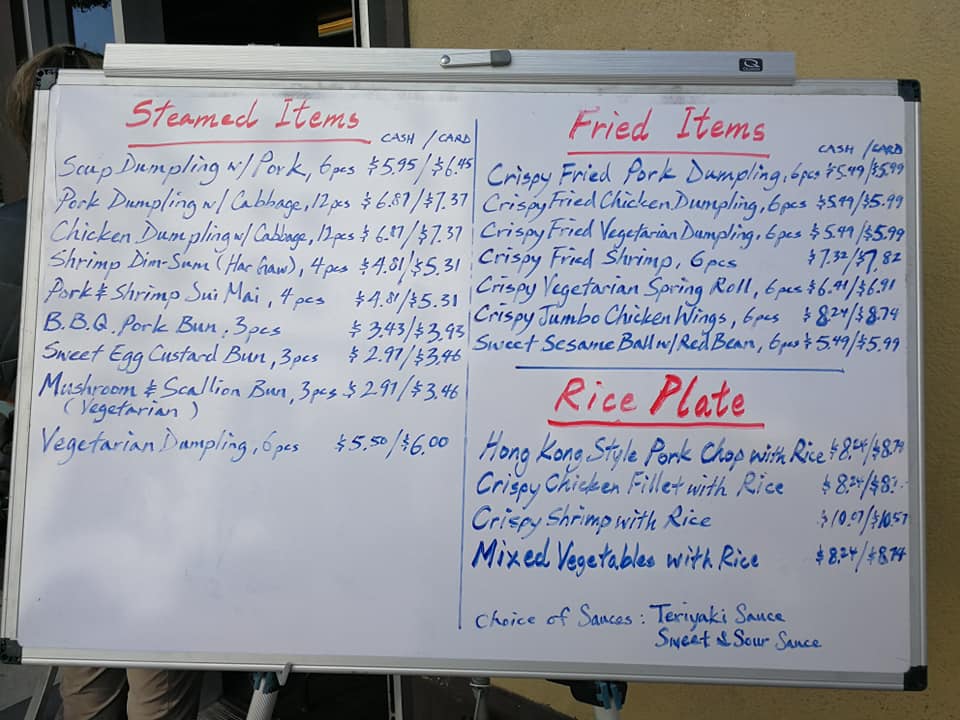 Steamed Items
CASH / CARD
Soup Dumpling w/ Pork, 6pcs $5.95/$6.45
Pork Dumpling w/ Cabbage, 12pcs $6.87/$7.37
Chicken Dumpling w/ Cabbage, 12pcs $6.87/$7.37
Shrimp Dim-Sum (Har Gaw), 4pcs $4.81/$5.31
Pork & Shrimp Sui Mai, 4pcs $4.81/$5.31
B.B.Q. Pork Bun, 3pcs $3.43/$3.93
Sweet Egg Custard Bun, 3pcs $2.97/$3.46
Mushroom & Scallion Bun, 3pcs $2.97/$3.46
(Vegetarian)
Vegetarian Dumpling, 6pcs $5.50/$6.00
Fried Items
CASH / CARD
Crispy Fried Pork Dumpling, 6pcs $5.49/$5.99
Crispy Fried Chicken Dumpling, 6pcs $5.49/$5.99
Crispy Fried Vegetarian Dumpling, 6pcs $5.49/$5.99
Crispy Fried Shrimp, 6pcs $7.32/$7.82
Crispy Vegetarian Spring Roll, 6pcs $6.41/$6.91
Crispy Jumbo Chicken Wings, 6pcs $8.24/$8.74
Sweet Sesame Ball w/ Red Bean, 6pcs $5.49/$5.99
Rice Plate
Hong Kong Style Pork Chop with Rice $8.24/$8.74
Crispy Chicken Fillet with Rice $8.24/
Crispy Shrimp with Rice $10.07/$10.57
Mixed Vegetables with Rice $8.24/$8.74
Choice of Sauces: Teriyaki Sauce
Sweet & Sour Sauce